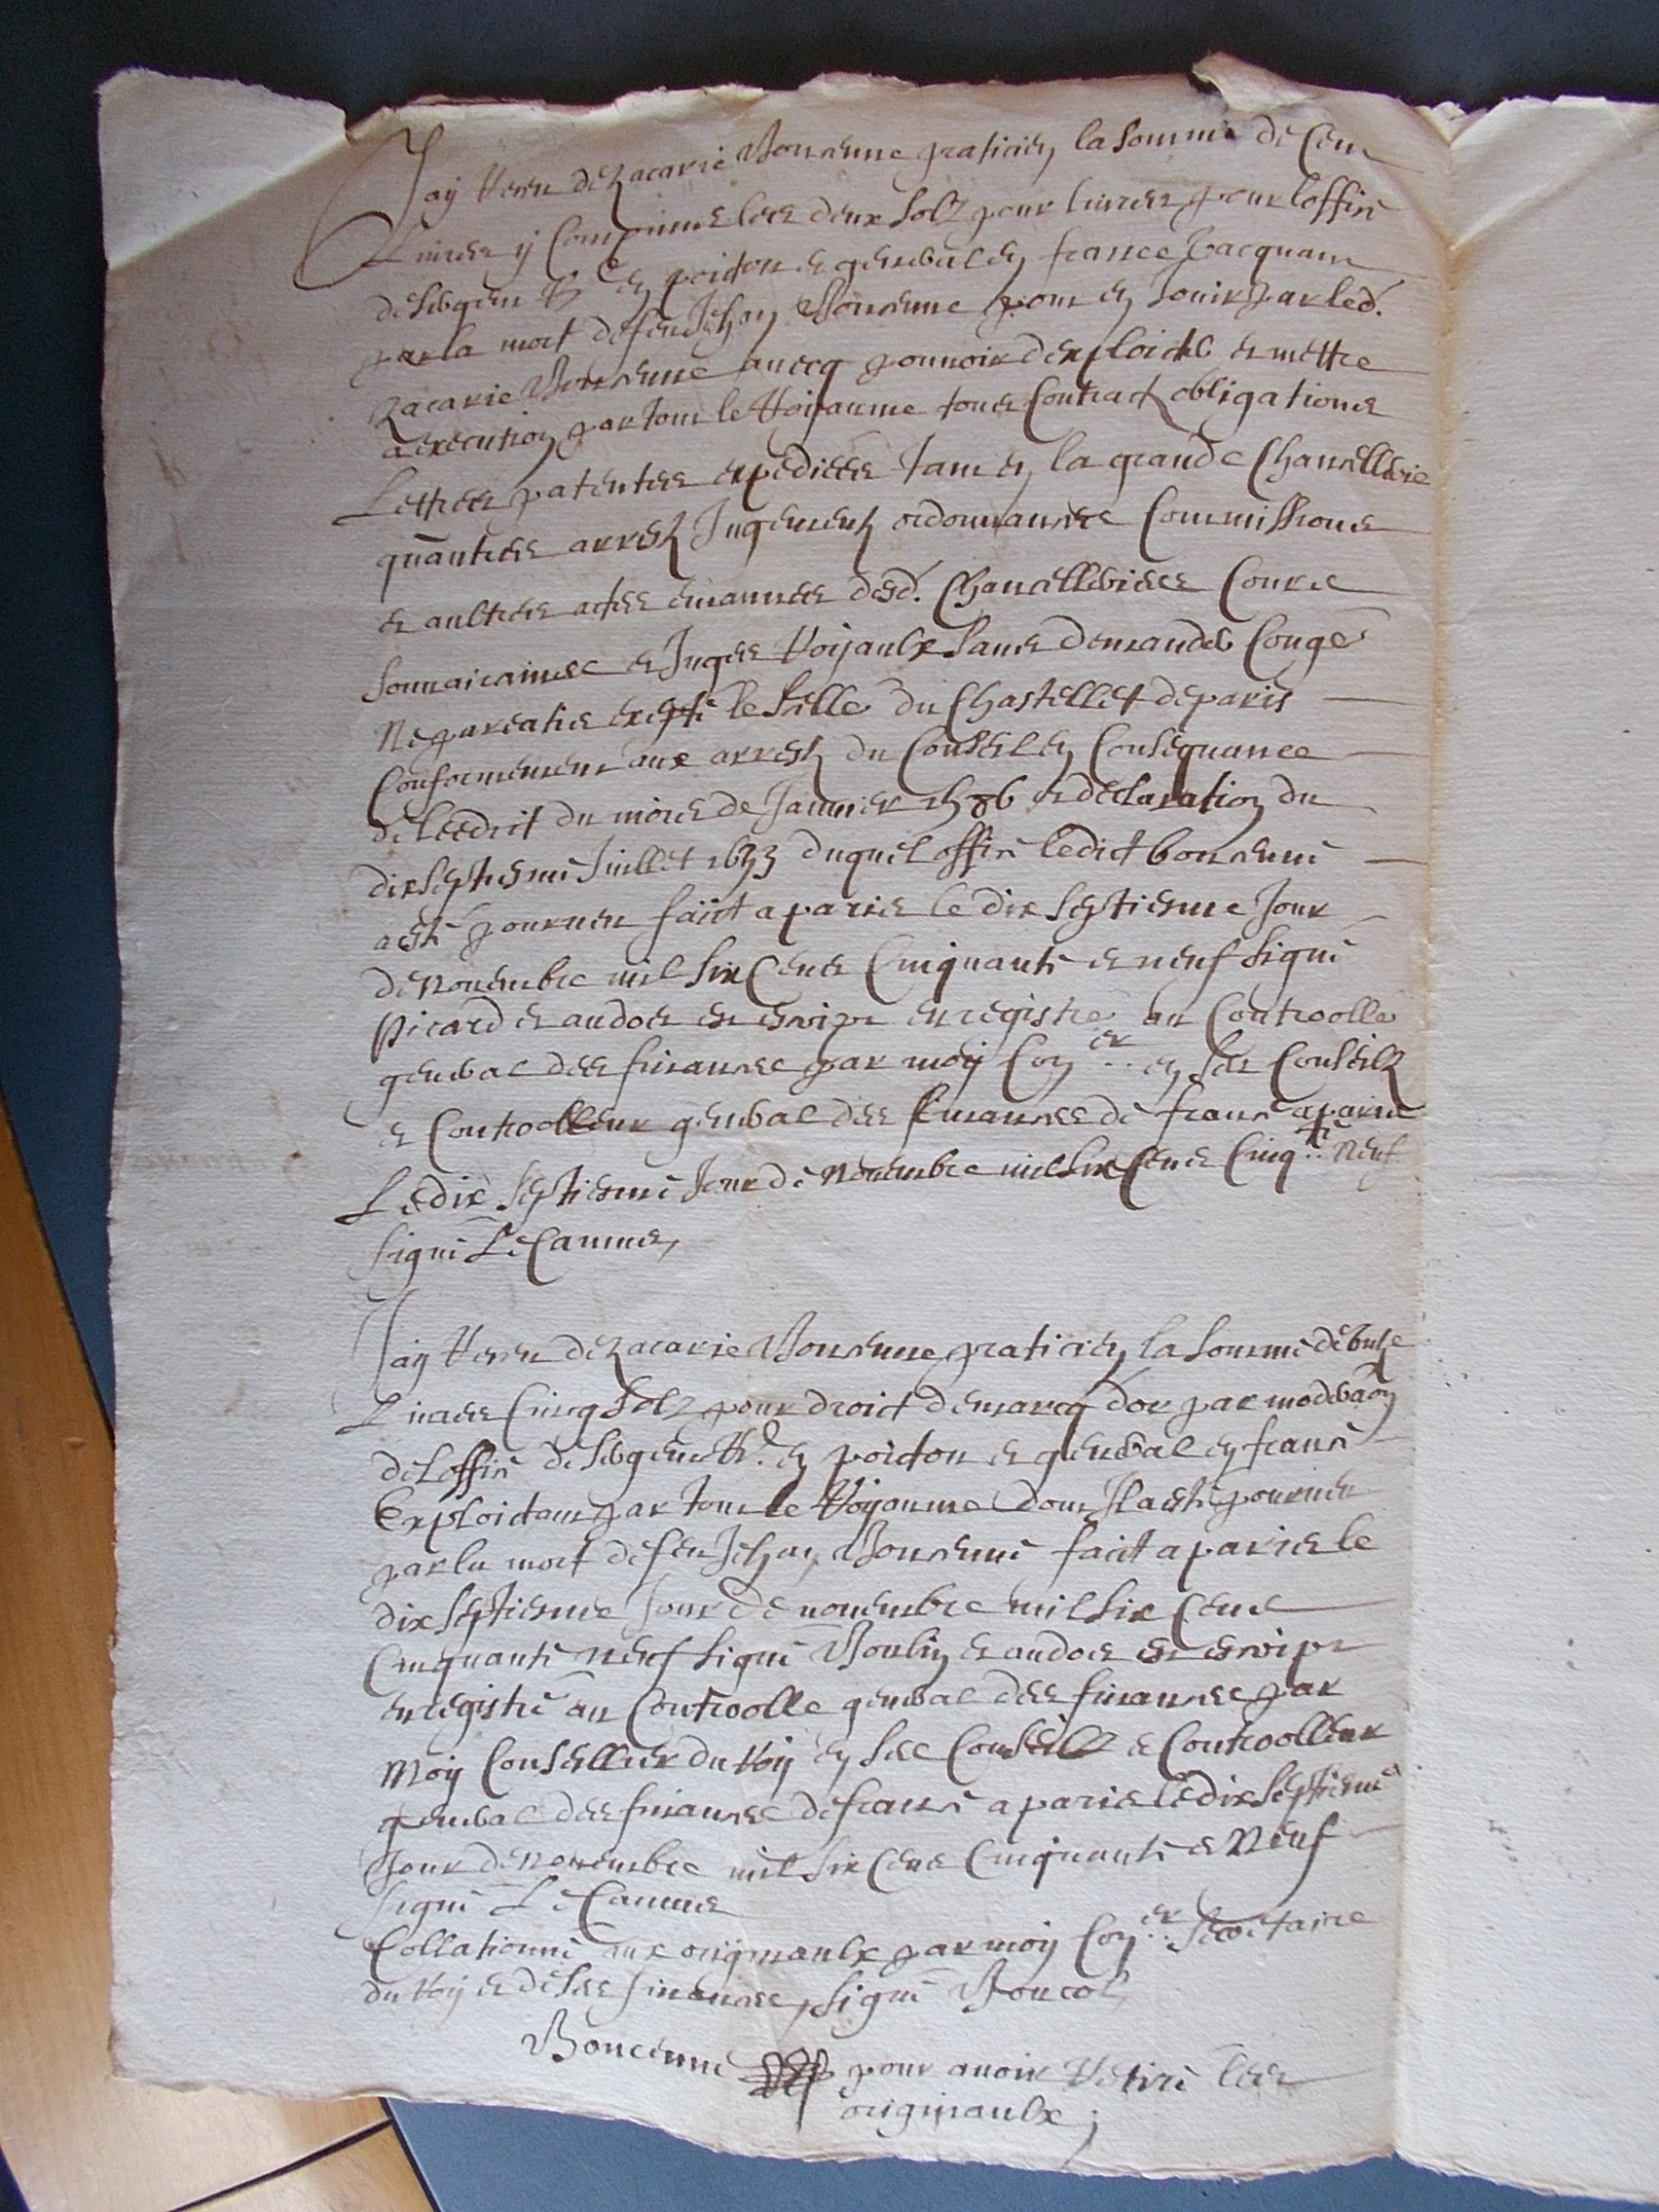 Jay Receu de Zacarie Boncenne praticien la somme de Cent
Livres y Comprins les deux solz pour livres pour loffice
de sergent R en poictou et general en france vacquant
par la mort de feu Jehan Boncenne pour en Jouir par led.
Zacarie Boncenne avecq pouvoir dexploicter et mettre
a execution par tout le Royaume tous Contractz obligations
Lettres patentes expediees tant en la grande Chancellerie
quautres arrestz Jugementz ordonnances Commissions
et aultres actes emannees desd. Chancelleries Cours
souveraines et Juges Royaulx sans demander Conge
Ne pareatis excepté le scellé du Chastellet de paris
Conformement aux arrestz du Conseil en Consequance
de leedict du mois de Janvier 1586 et declaration du
dix septiesme Juillet 1633 duquel office ledict boncenne
a esté pourveu faict a paris le dix septiesme Jour
de novembre mil six Cens Cinquante et neuf signé
Picard et au dos est escript enregistré au Controolle
general des finances par moy Con er en ses Conseilz
et Controolleur general des finances de france a paris
Le dix septiesme Jour de novembre mil six Cens Cinq te neuf
signé Le Camus,
Jay Receu de Zacarie Boncenne praticien la somme de unze
Livres Cinq solz pour droict de marcq dor par moderaon
de Loffice de sergent R. en poictou et general en france
Exploictant par tout le Royaume dont Il a esté pourveu
par la mort de feu Jehan Boncenne faict a paris le
dix septiesme Jour de novembre mil six Cens
Cinquante neuf signé Boulin et au dos est escript
enregistré au Controolle general des finances par
Moy Conseiller du Roy en ses Conseilz et Controolleur
general des finances de france a paris le dix septiesme
Jour de novembre mil six Cens Cinquante et Neuf
signé Le Camus
Collationné aux originaulx par moy Con er secretaire
du Roy et de ses finances, signé
Boncenne pour avoir Retiré les
originaulx ;